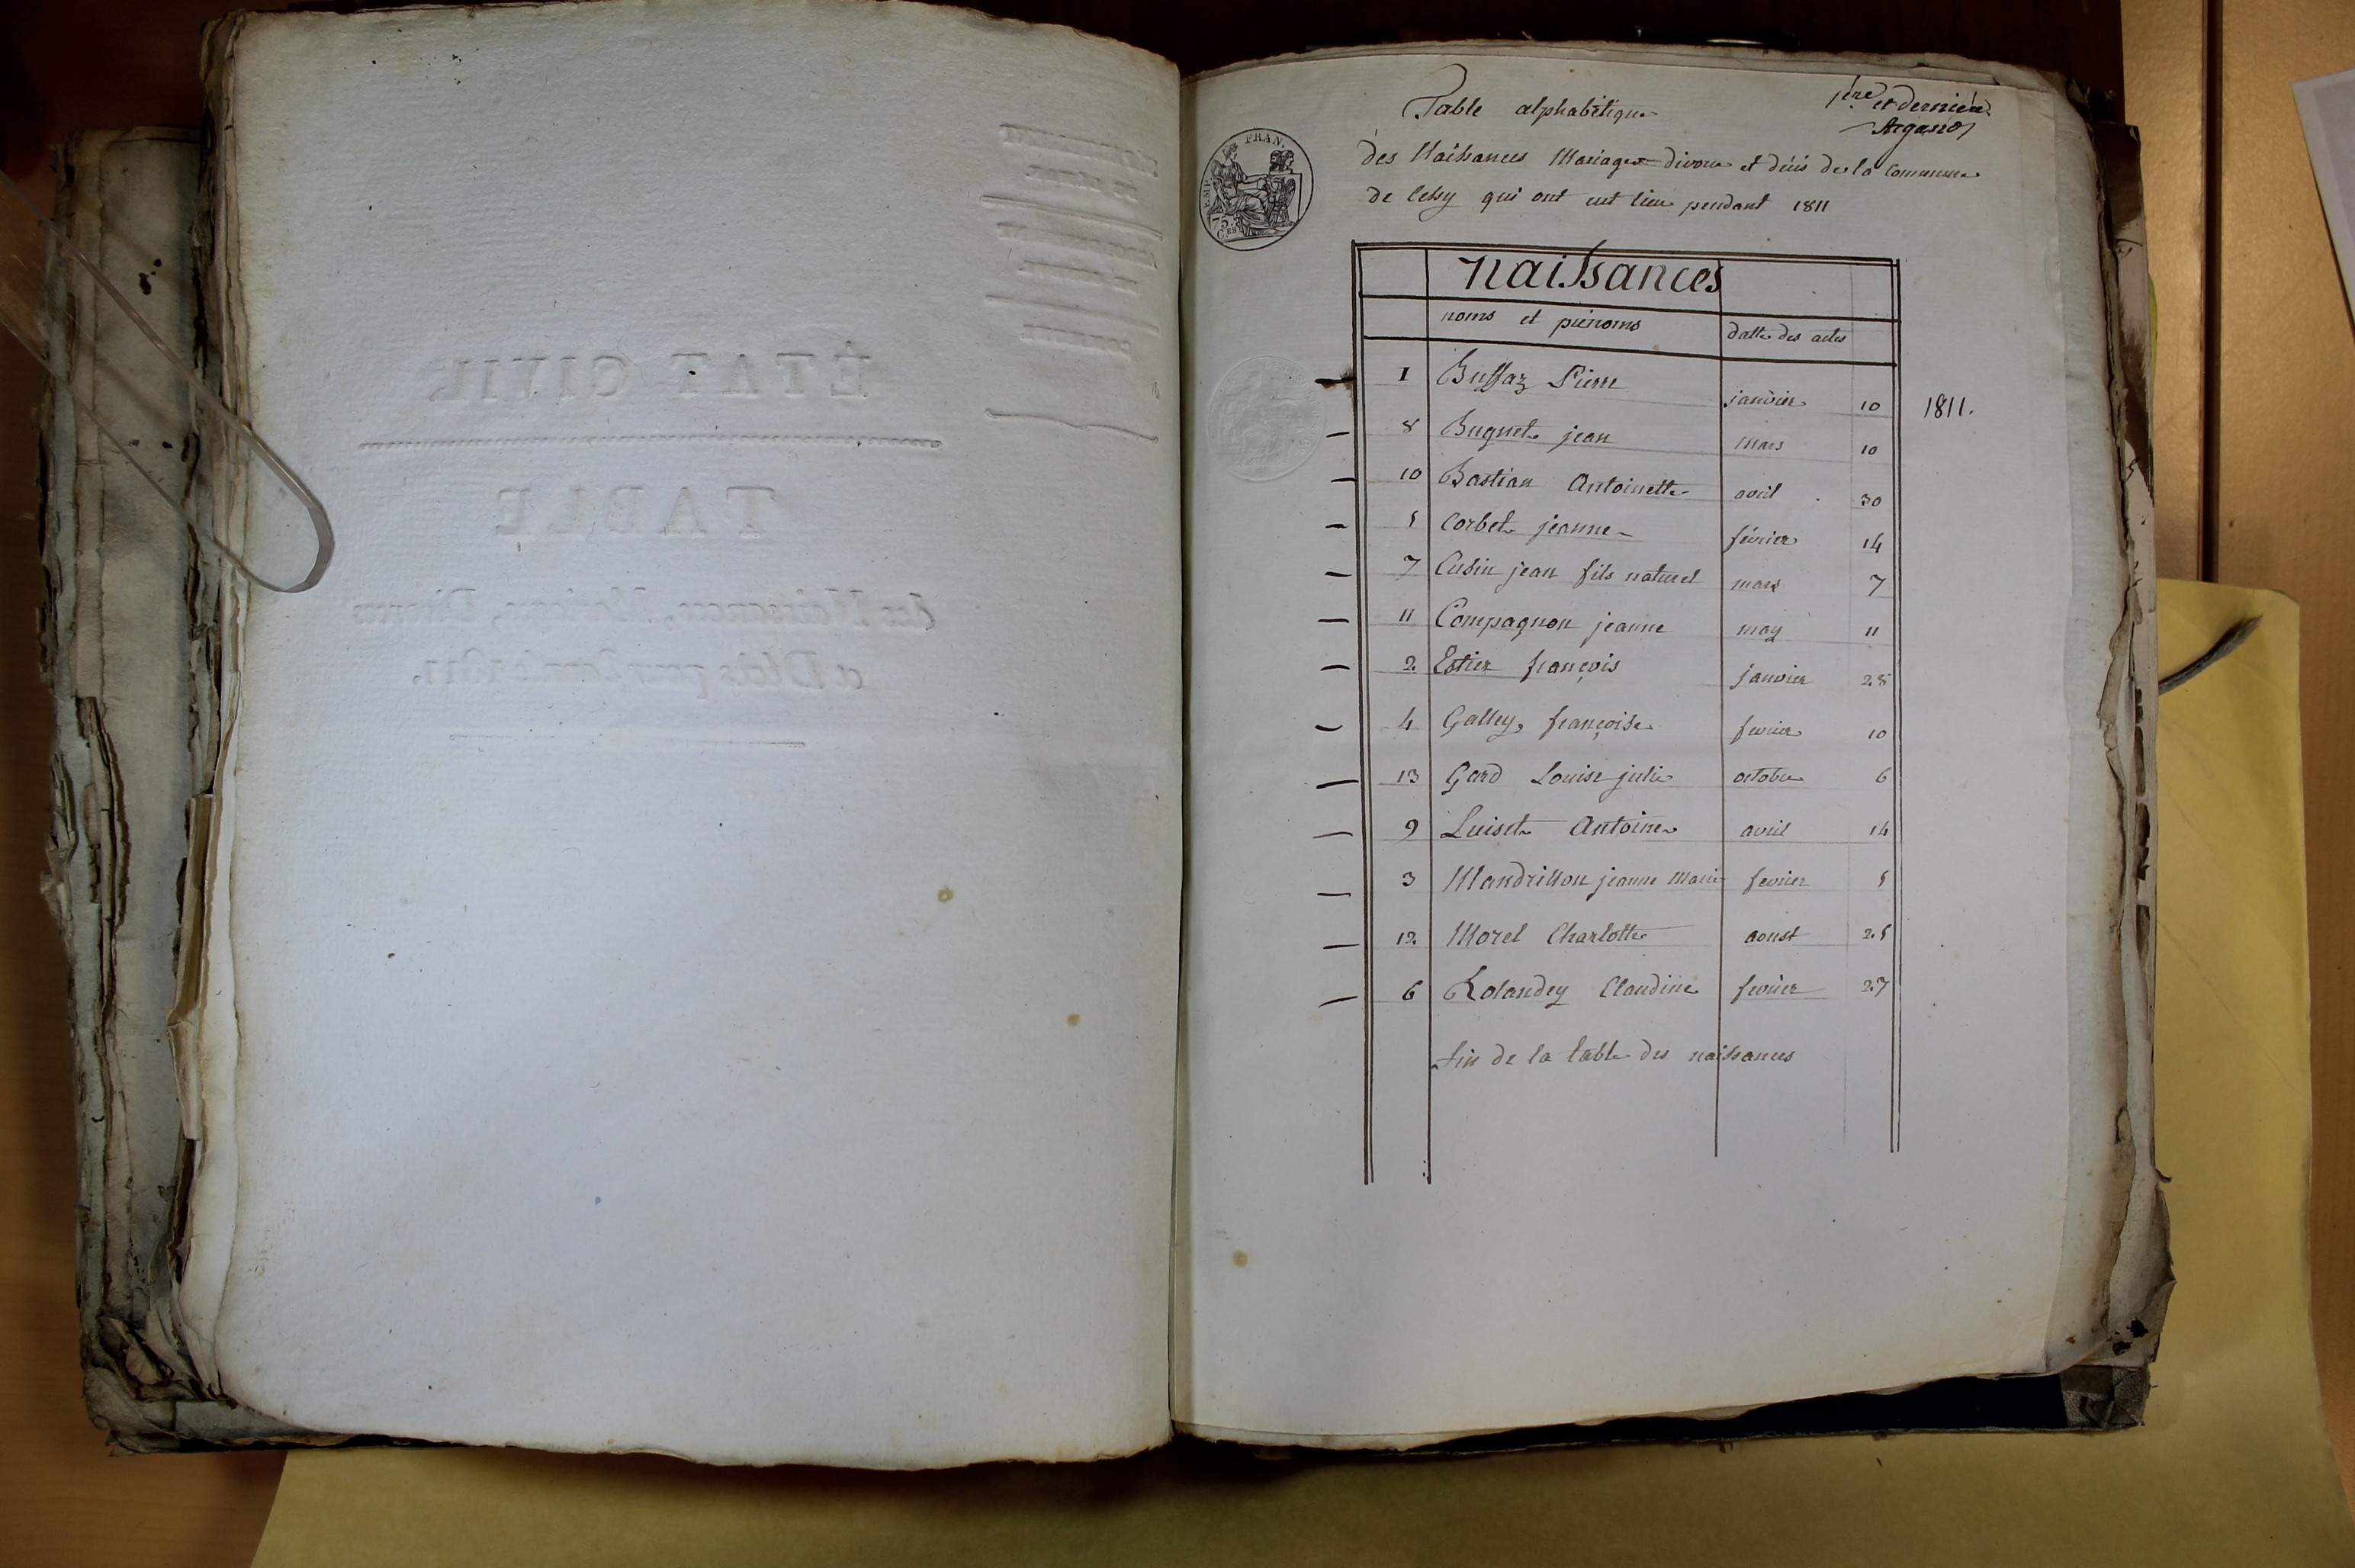 Table alphabétique
1ère et dernière
Argand
des Naissances Mariages divorce et décès de la Commune
de Cessy qui ont eut lieu pendant 1811
EMP. FRAN.
75.
C.ES
naissances
noms et prénoms datte des actes
1 Buffaz Pierre janvier 10 1811.
8 Buguet jean mars 10
10 Bastian Antoinette avril 30
5 Corbet jeanne février 14
7 Cusin jean fils naturel mars 7
11 Compagnon jeanne may 11
2 Estier françois janvier 28
4 Galley françoise fevrier 10
13 Gard Louise julie octobre 6
9 Luiset Antoine avril 14
3 Mandrillon jeanne Marie fevrier 5
12 Morel Charlotte aoust 25
6 Rolandey Claudine fevrier 27
fin de la table des naissances
ÉTAT CIVIL
TABLE
des Naissances, Mariages, Divorces
et Décès pour l'année 1811.